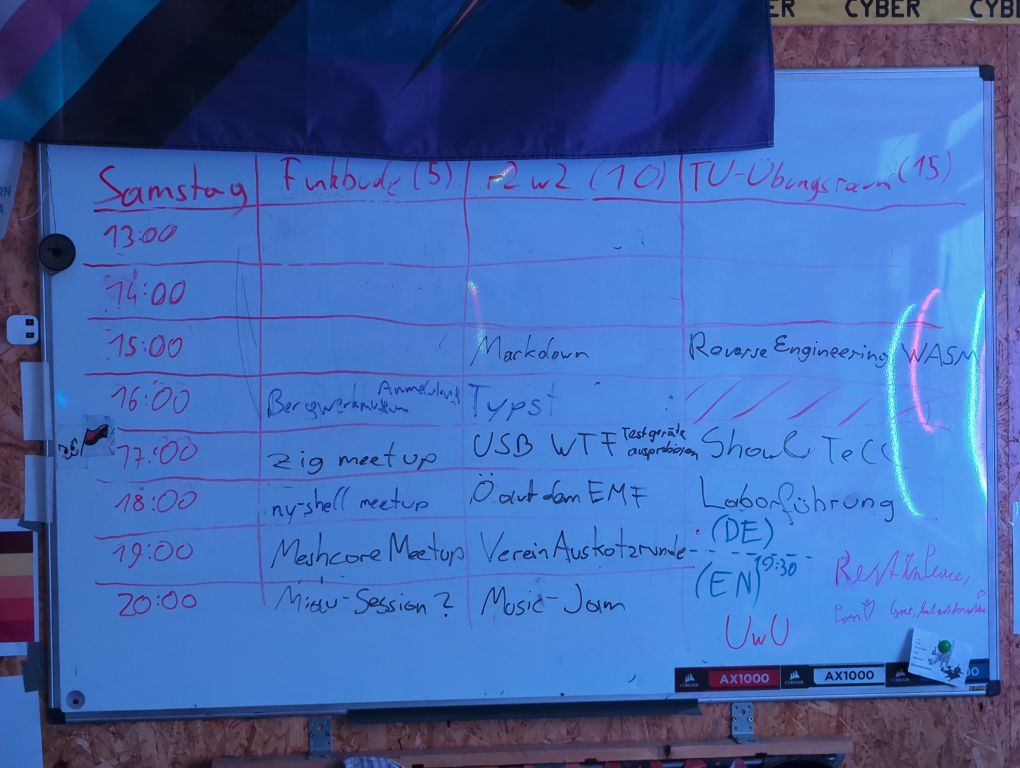 ER CYBER CYBE
Samstag Funkbude (5) r2w2 (10) TU-Übungsraum (15)
13:00
14:00
15:00 Markdown Reverse Engineering WASM
16:00 Bergwerkmuseum Anmeldung Typst
17:00 zig meetup USB WTF Testgeräte ausprobieren Show & Tell
18:00 ny-shell meetup Ö auf dem EMF Laborführung
(DE)
19:00 Meshcore Meetup Verein Auskotzrunde
19:30
(EN)
20:00 Miau-Session? Music-Jam
UwU
Rest in Peace,
CORSAIR AX1000 CORSAIR AX1000 CORSAIR